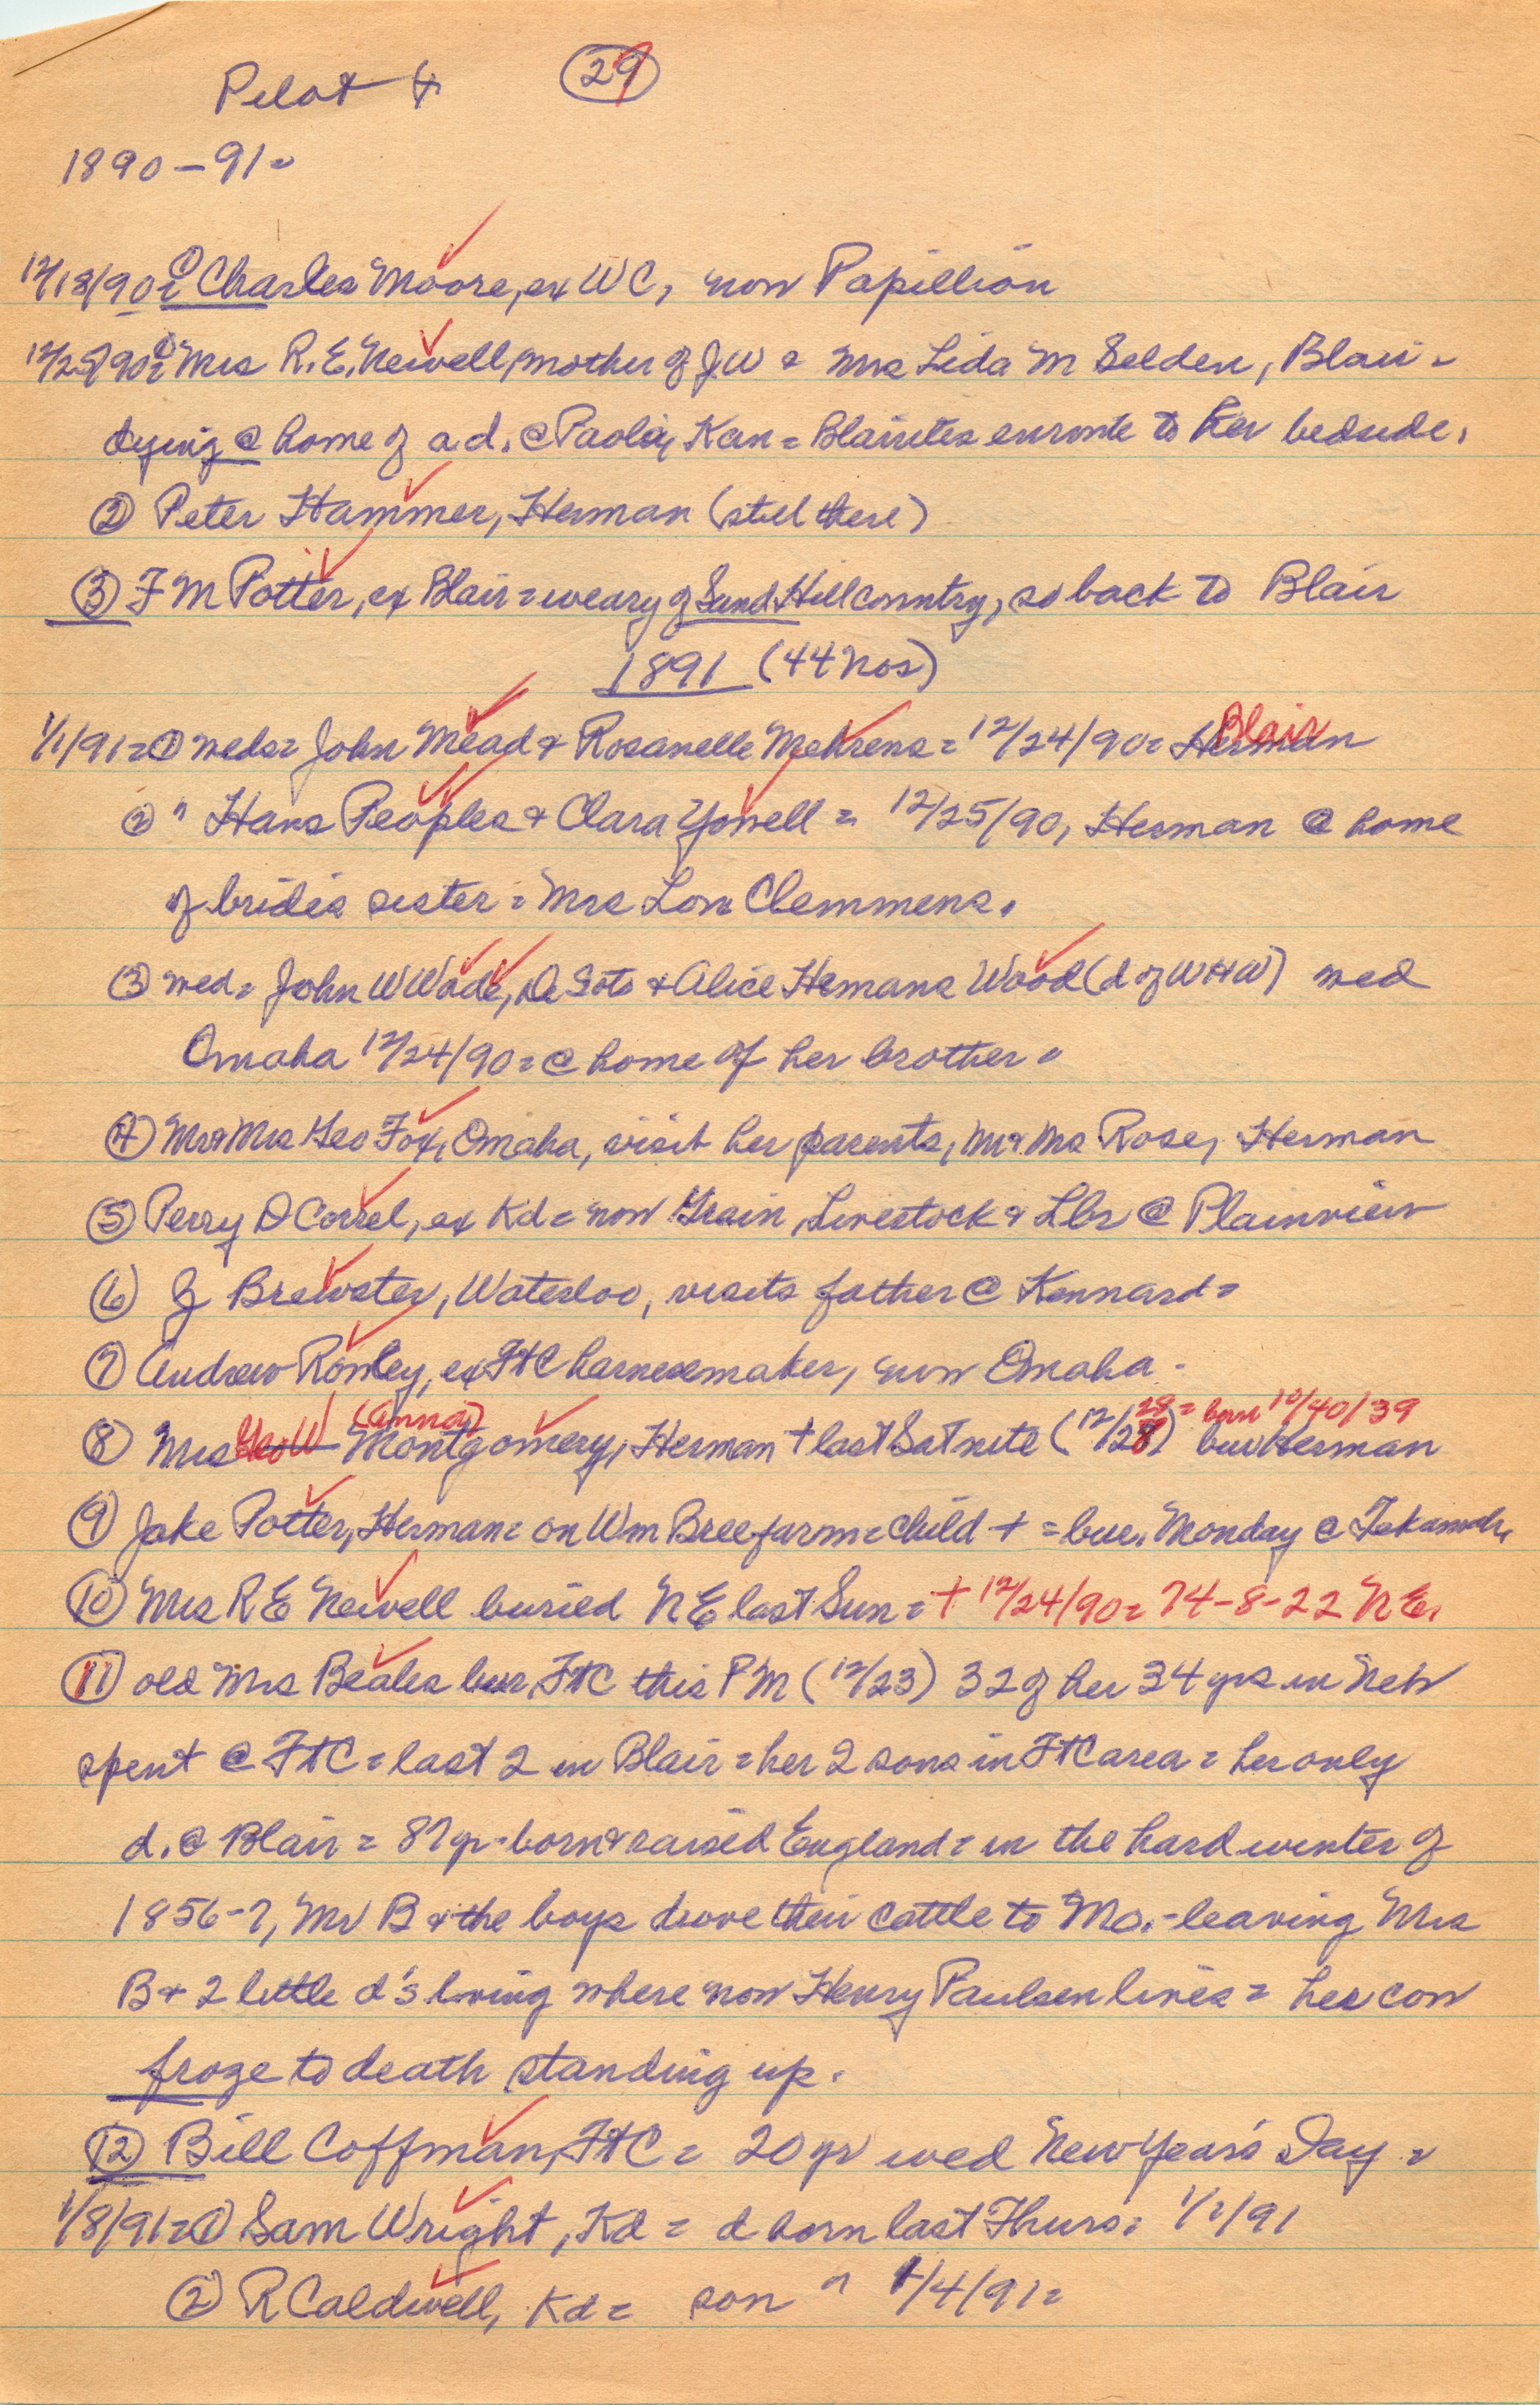 Pilot 4 29
1890-91=
12/18/90= ① Charles Moore, ex WC, now Papillion
12/25/90= ① Mrs R.E. Newell, mother of JW & Mrs Leda M Selden, Blair =
dying @ home of a d. @ Paola, Kan = Blairites enroute to her bedside.
② Peter Hammer, Herman (still there)
③ F M Potter, ex Blair = weary of Sand Hill country, so back to Blair
1891 (44 nos)
1/1/91= ① weds= John Mead & Rosanelle Mehrens = 12/24/90= Herman Blair
② " Hans Peoples & Clara Yowell = 12/25/90, Herman @ home
of bride's sister = Mrs Lon Clemmens.
③ wed= John W Wade, De Soto & Alice Hemans Wood (d of WHW) wed
Omaha 12/24/90= @ home of her brother =
④ Mr & Mrs Geo Fox, Omaha, visit her parents, Mr & Mrs Rose, Herman
⑤ Perry D Correl, ex Kd = now Grain, Livestock & Lbr @ Plainview
⑥ J Brewster, Waterloo, visits father @ Kennard =
⑦ Andrew Rowley, ex FtC harnessmaker, now Omaha -
⑧ Mrs Geo W (Anna) Montgomery, Herman + last Sat nite (12/28) bur Herman 28 = born 10/40/39
⑨ Jake Potter, Herman = on Wm Bree farm = child + = bur. Monday @ Tekamah,
⑩ Mrs R E Newell buried NE last Sun = + 12/24/90= 74-8-22 NE.
⑪ old Mrs Beales bur. FtC this PM (12/23) 32 of her 34 yrs in Neb
spent @ FtC = last 2 in Blair = her 2 sons in FtC area = her only
d. @ Blair = 87 yr - born & raised England = in the hard winter of
1856-7, Mr B & the boys drove their cattle to Mo. - leaving Mrs
B & 2 little d's living where now Henry Paulsen lives = her cow
froze to death standing up.
⑫ Bill Coffman, FtC = 20 yr wed New Year's Day =
1/8/91= ① Sam Wright, Kd = d born last Thurs: 1/1/91
② R Caldwell, Kd = son " 1/4/91=